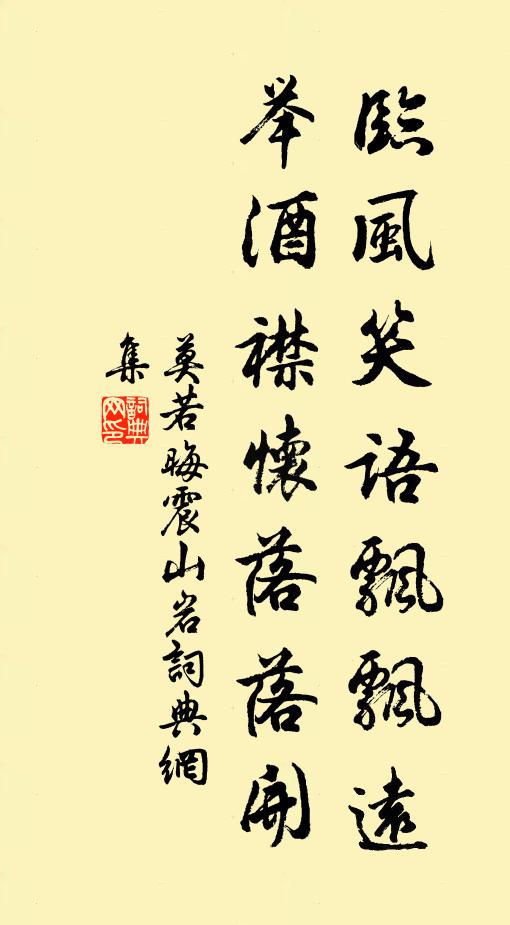 臨風笑語飄飄遠
举酒襟懷落落開
莫若晦震山岩詞典網
集
詞典
网印